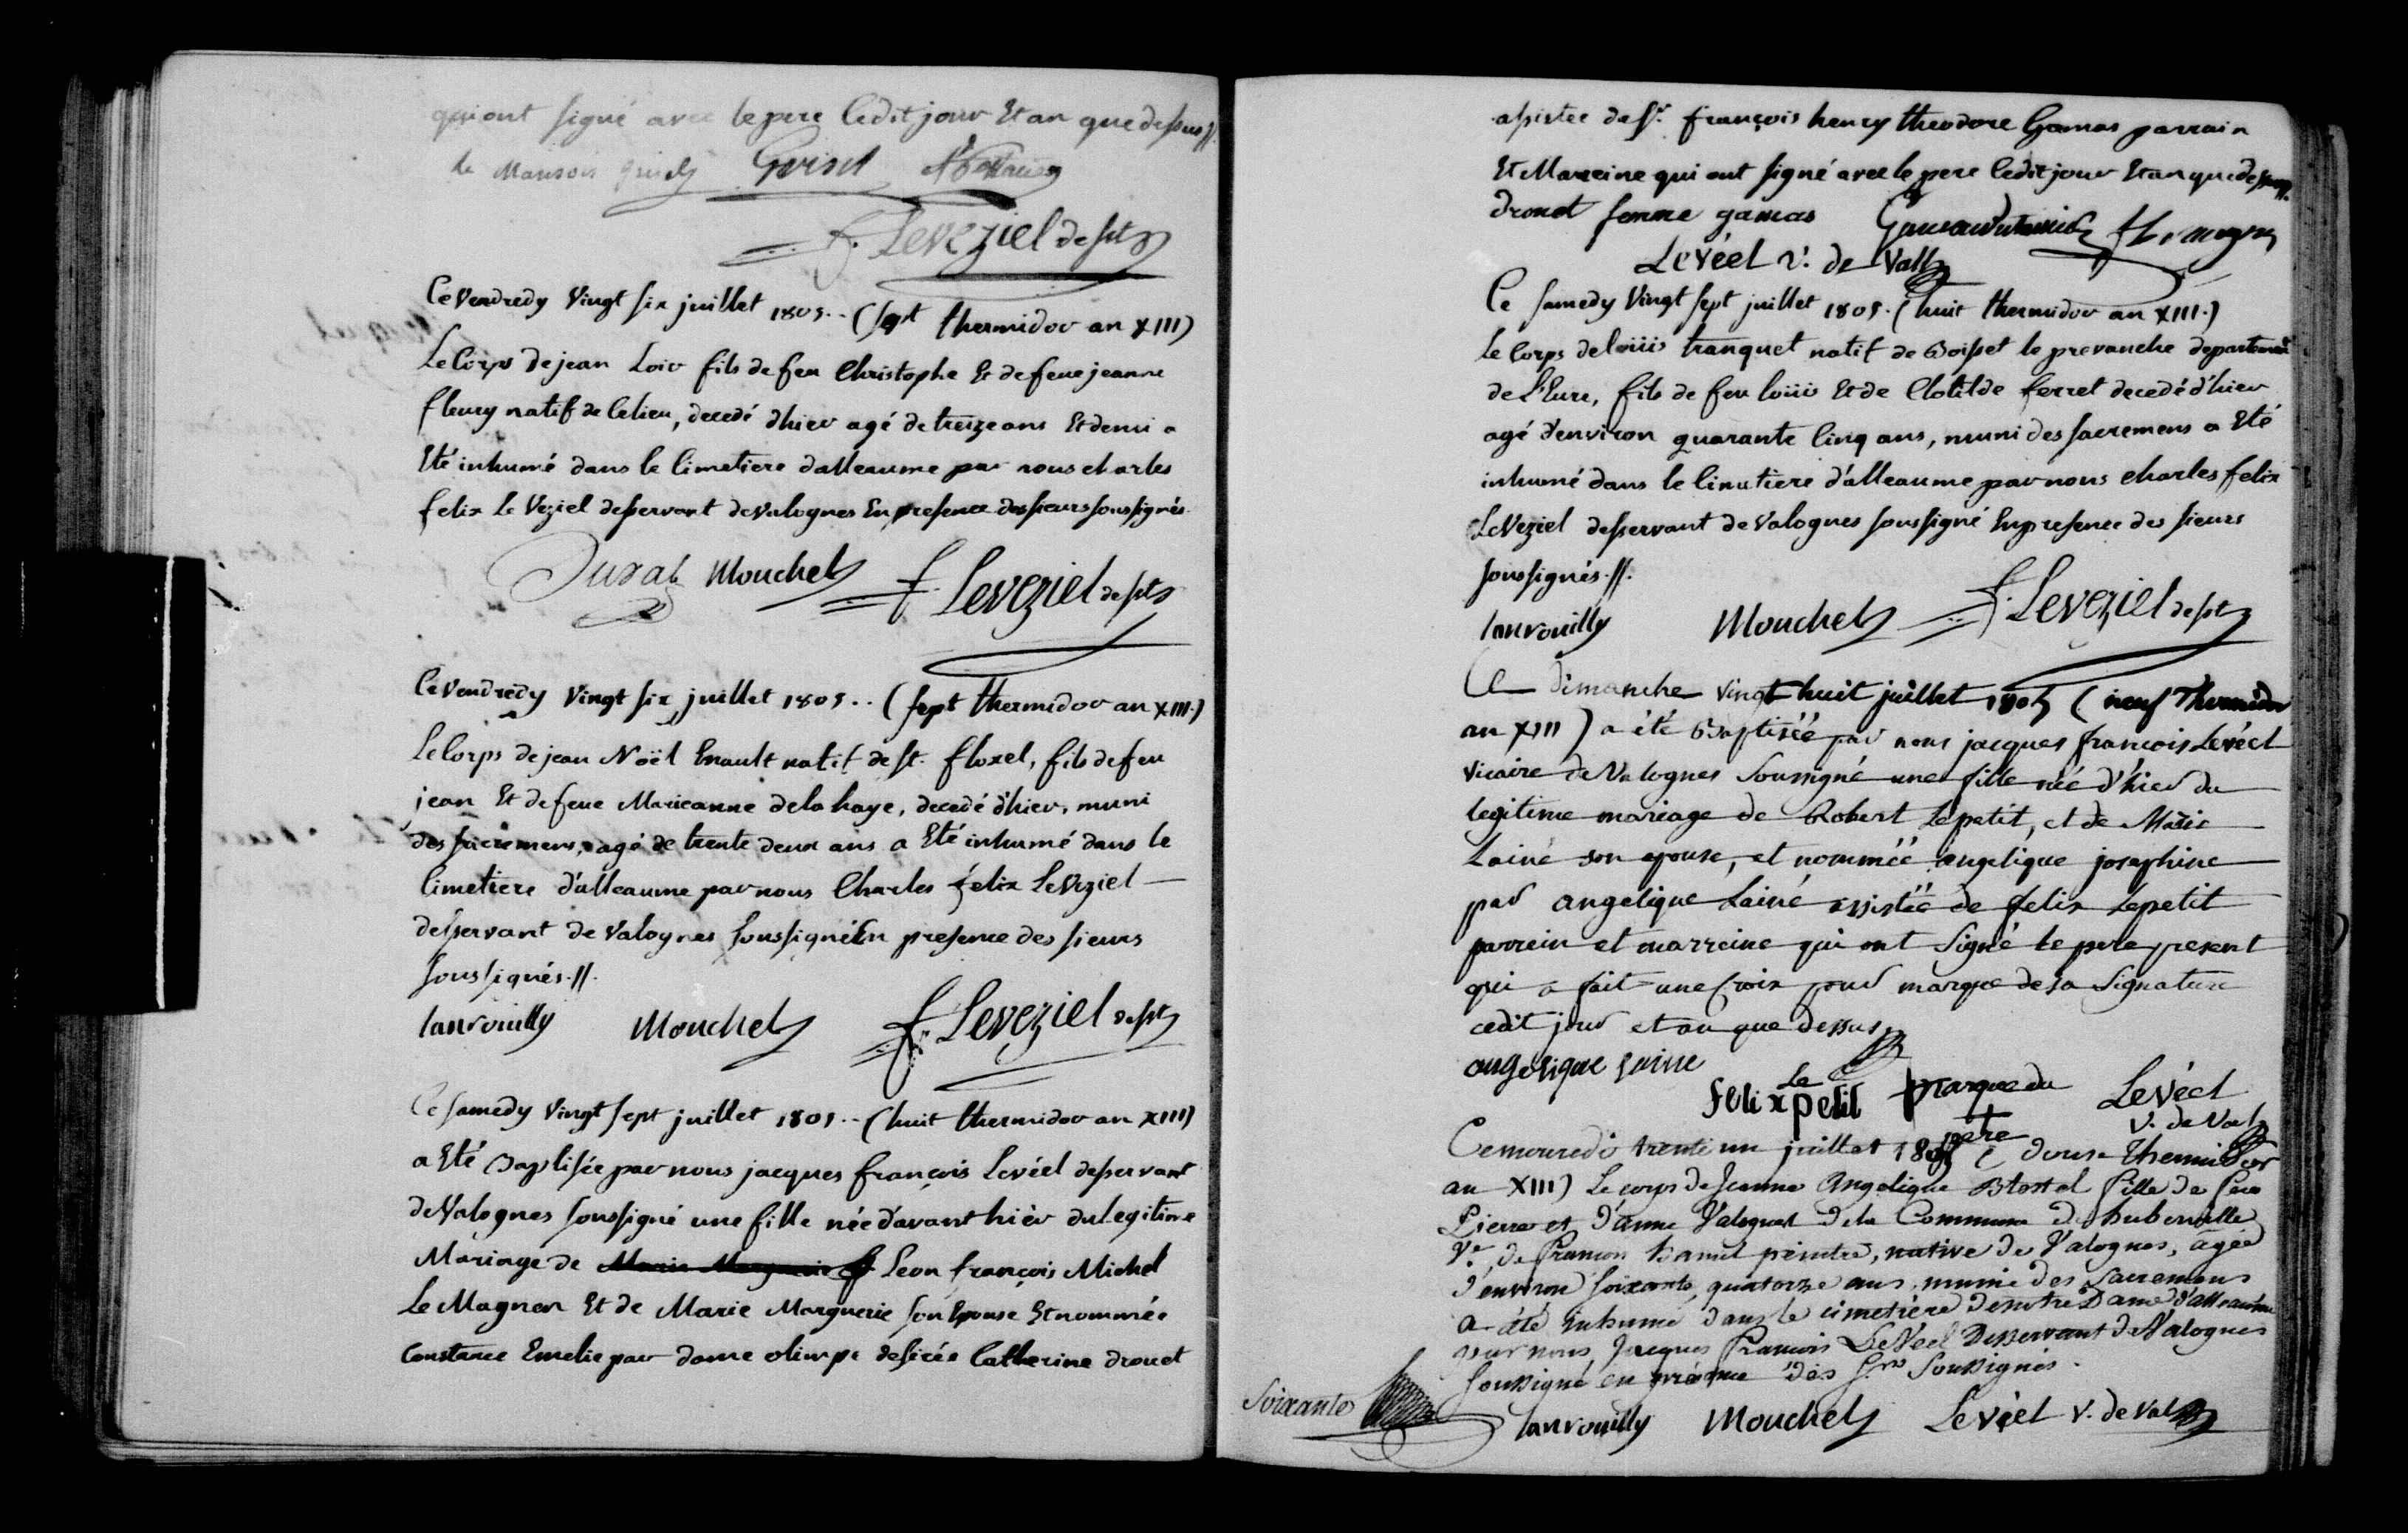 qui ont signé avec le pere ledit jour Et an que dessus //.
Grisel
f. Leveziel desst
Ce Vendredy Vingt six juillet 1805.. (sept thermidor an XIII)
Le Corps de jean Loir fils de feu Christophe Et de feue jeanne
fleury natif de ce lieu, decedé d'hier agé de treize ans Et demi a
Eté inhumé dans le Cimetiere d'alleaume par nous charles
felix Le Veziel desservant de Valognes En presence des sieurs soussignés.
Duval Mouchel f. Leveziel desst
Ce Vendredy Vingt six juillet 1805.. (sept thermidor an XIII.)
Le Corps de jean Noël Enault natif de st. floxel, fils de feu
jean Et de feue Marieanne delahaye, decedé d'hier, muni
des sacremens, agé de trente deux ans a Eté inhumé dans le
Cimetiere d'alleaume par nous Charles felix Le Veziel
desservant de Valognes soussigné En presence des sieurs
soussignés.//.
Lanrouilly Mouchel f. Leveziel desst
Ce samedy Vingt sept juillet 1805.. (huit thermidor an XIII)
a Eté Baptisée par nous jacques françois Levéel desservant
de Valognes soussigné une fille née d'avant hièr du legitime
Mariage de Leon françois Michel
Le Magnen Et de Marie Marguerie son Epouse Et nommée
Constance Emelie par dame olimpe desirée Catherine drouet
assistée de Sr. françois henry theodore Gamas parrain
Et Marreine qui ont signé avec le pere ledit jour Et an que dessus//.
drouet femme gamas
Levéel V. de Vall
Ce samedy Vingt sept juillet 1805. (huit thermidor an XIII.)
Le Corps de loüis tranquet natif de Boisset le prevanche departement
de L'Eure, fils de feu loüis Et de Clotilde ferret decedé d'hier
agé d'environ quarante Cinq ans, muni des sacremens a Eté
inhumé dans le Cimetiere d'alleaume par nous charles felix
LeVeziel desservant de Valognes soussigné En presence des sieurs
soussignés.//.
Lanrouilly Mouchel f. Leveziel desst
Ce dimanche vingt huit juillet 1805 (neuf Thermidor
an XIII) a été Baptiséé par nous jacques françois Levéel
vicaire de Valognes Soussigné une fille néé d'hier du
legitime mariage de Robert Lepetit, et de Marie
Lainé son epouse, et nomméé angelique josephine
par angelique Lainé assistéé de felix Lepetit
parrein et marreine qui ont Signé le pere present
qui a fait une Croix pour marque de sa Signature
cedit jour et an que dessus
angelique laine
felix Le petit marque du + pere Levéel
V. de Val
Ce mercredi trente un juillet 1805 ( douze Thermidor
an XIII) Le corps de Jeanne Angelique Blestel fille de feu
Pierre et d'anne Valognes de la Commune de huberville
Ve. de francois hamel peintre, native de Valognes, agée
d'environ soixante quatorze ans munie des Sacremens
a été inhumé dans le cimetière de notre Dame d'alleaume
par nous Jacques francois LeVéel Desservant de Valognes
soussigné en présence des Srs Soussignés.
Soixante
Lanrouilly Mouchel Levéel V. de Val